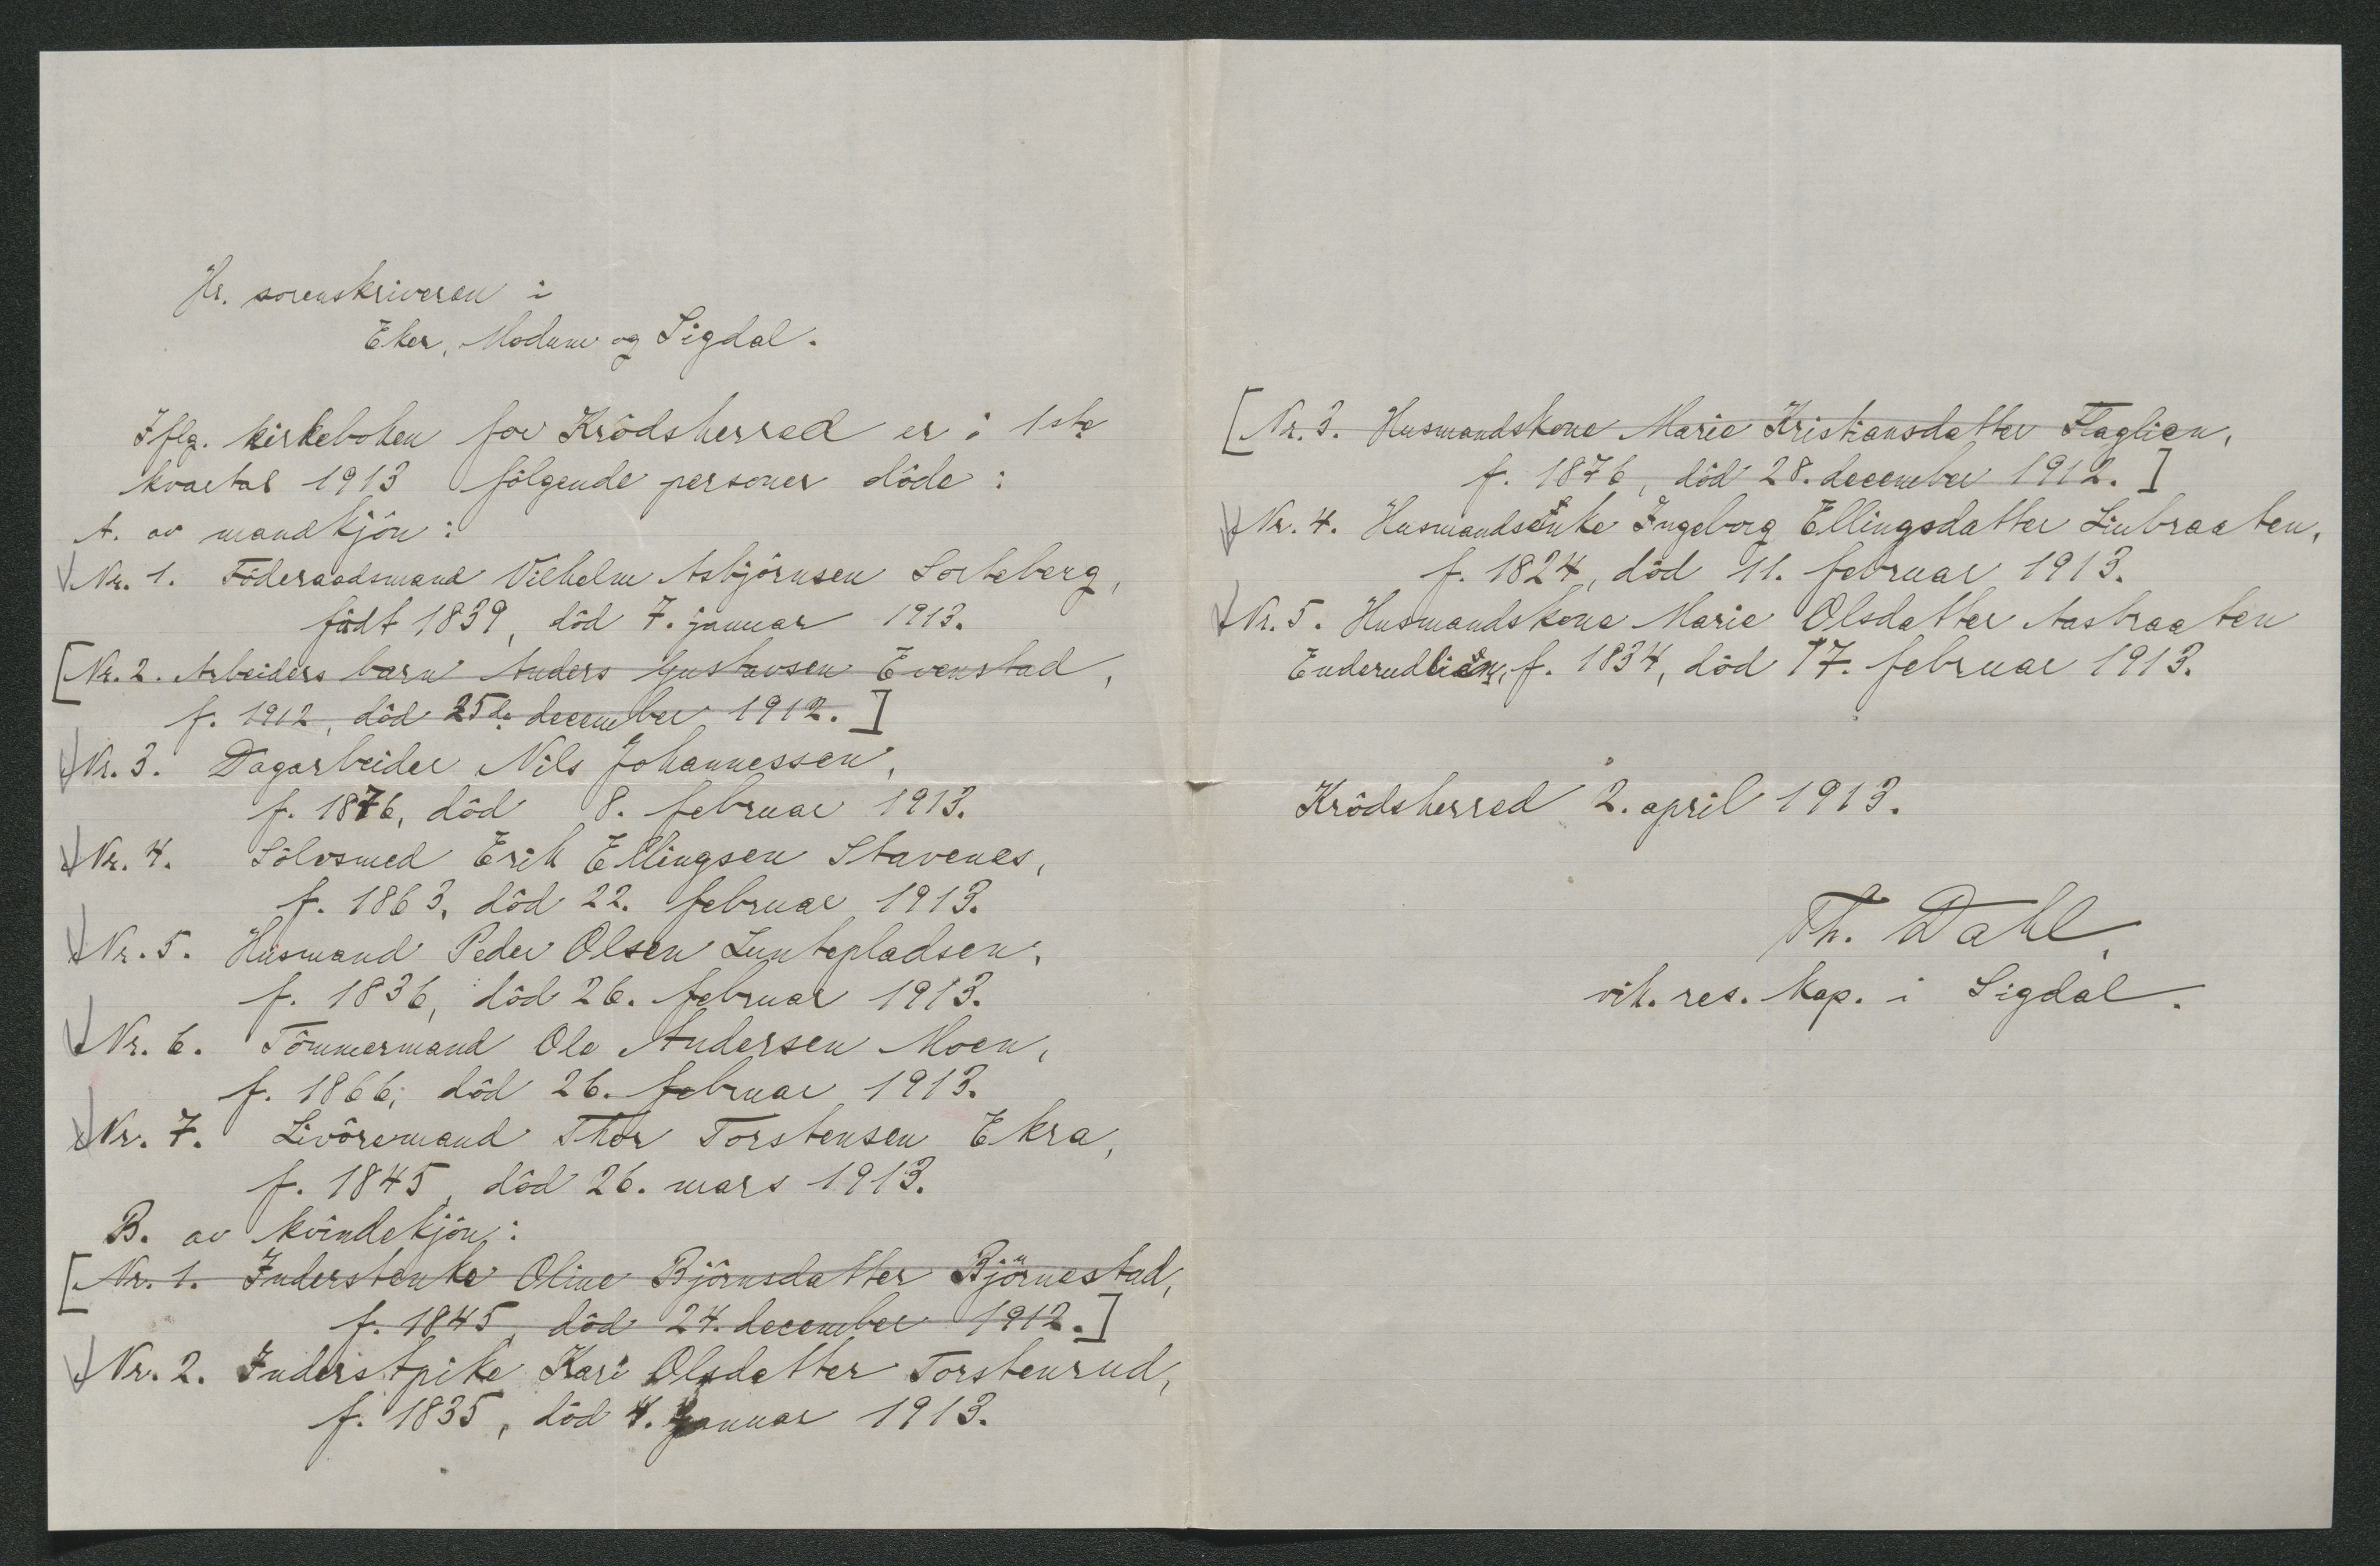 Hr. sorenskriveren i
Eker, Modum og Sigdal.
Iflg. kirkeboken for Krödsherred er i 1ste
kvartal 1913 fölgende personer döde:
A. av mandkjön:
Nr. 1. Föderaadsmand Vilhelm Asbjörnsen Sorteberg,
födt 1839, död 7. januar 1913.
[Nr. 2. Arbeiders barn Anders Gustavsen Evenstad,
f. 1912, död 25de december 1912.]
Nr. 3. Dagarbeider Nils Johannessen,
f. 1876, död 8. februar 1913.
Nr. 4. Sölvsmed Erik Ellingsen Stavenes,
f. 1863, död 22. februar 1913.
Nr. 5. Husmand Peder Olsen Luntepladsen,
f. 1836, död 26. februar 1913.
Nr. 6. Tömmermand Ole Andersen Moen,
f. 1866, död 26. februar 1913.
Nr. 7. Livöremand Thor Torstensen Ekra,
f. 1845, död 26. mars 1913.
B. av kvindekjön:
[Nr. 1. Inderstenke Oline Björnsdatter Björnestad,
f. 1845, död 24. december 1912.]
Nr. 2. Inderstpike Kari Olsdatter Torstenrud,
f. 1835, död 4. januar 1913.
[Nr. 3. Husmandskone Marie Kristiansdatter Flaglien,
f. 1876, död 28. december 1912.]
Nr. 4. Husmandsenke Ingeborg Ellingsdatter Linbraaten,
f. 1824, död 11. februar 1913.
Nr. 5. Husmandskone Marie Olsdatter Aasbraaten
Enderudlien, f. 1834, död 17. februar 1913.
Krödsherred 2. april 1913.
Th. Dahl,
vik. res. kap. i Sigdal.